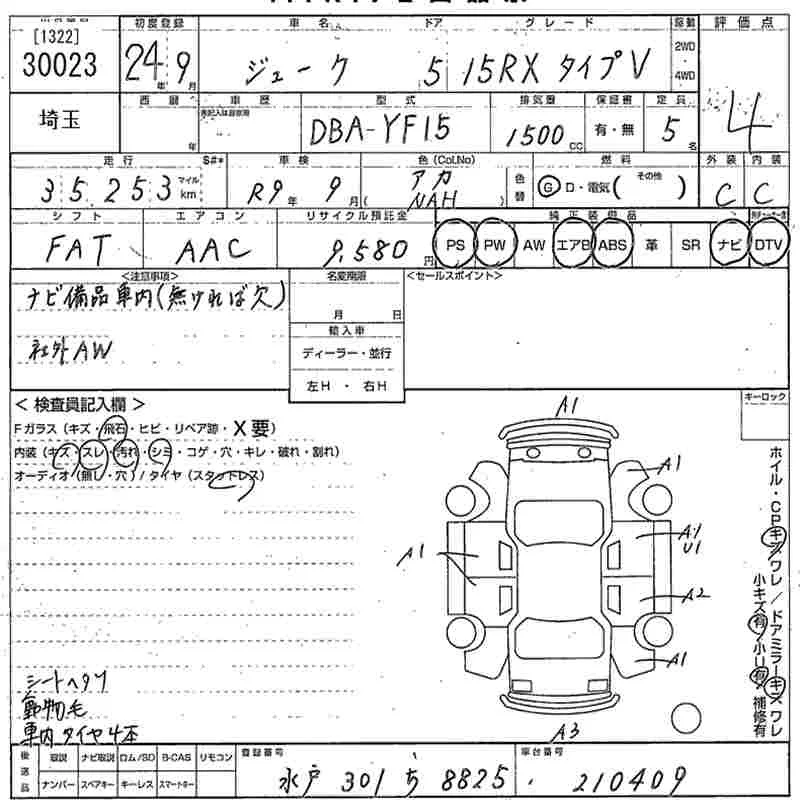 初度登録 車名 ドア グレード 駆動 評価点
[1322]
30023 24年9月 ジューク 5 15RX タイプV 2WD・4WD 4
西暦 車歴 型式 排気量 保証書 定員
埼玉 年 DBA-YF15 1500cc 有・無 5名
走行 S#* 車検 色(Col.No) 燃料 外装 内装
35,253 マイル km R9年 9月 アカ (NAH) 色替 G D・電気( その他 ) C C
シフト エアコン リサイクル預託金 純正装備品
FAT AAC 9,580円 PS PW AW エアB ABS 革 SR ナビ DTV
<注意事項> 名変期限 <セールスポイント>
ナビ備品車内(無ければ欠) 月 日
輸入車
社外AW ディーラー・並行
左H ・ 右H
< 検査員記入欄 > キーロック
Fガラス (キズ・飛石・ヒビ・リペア跡・X要)
内装 (キズ・スレ・汚れ・シミ・コゲ・穴・キレ・破れ・割れ)
オーディオ (無し・穴) / タイヤ (スタッドレス)
A1
A1
A1
A1
U1
A2
A1
A3
ホイル・CPキズワレ / ドアミラーキズワレ
小キズ有 小U有 補修有
シートヘタリ
動物毛
車内タイヤ4本
後送品 取説 ナビ取説 ロム/SD B-CAS リモコン 登録番号 車台番号
ナンバー スペアキー キーレス スマートキー 水戸 301 ち 8825 210409